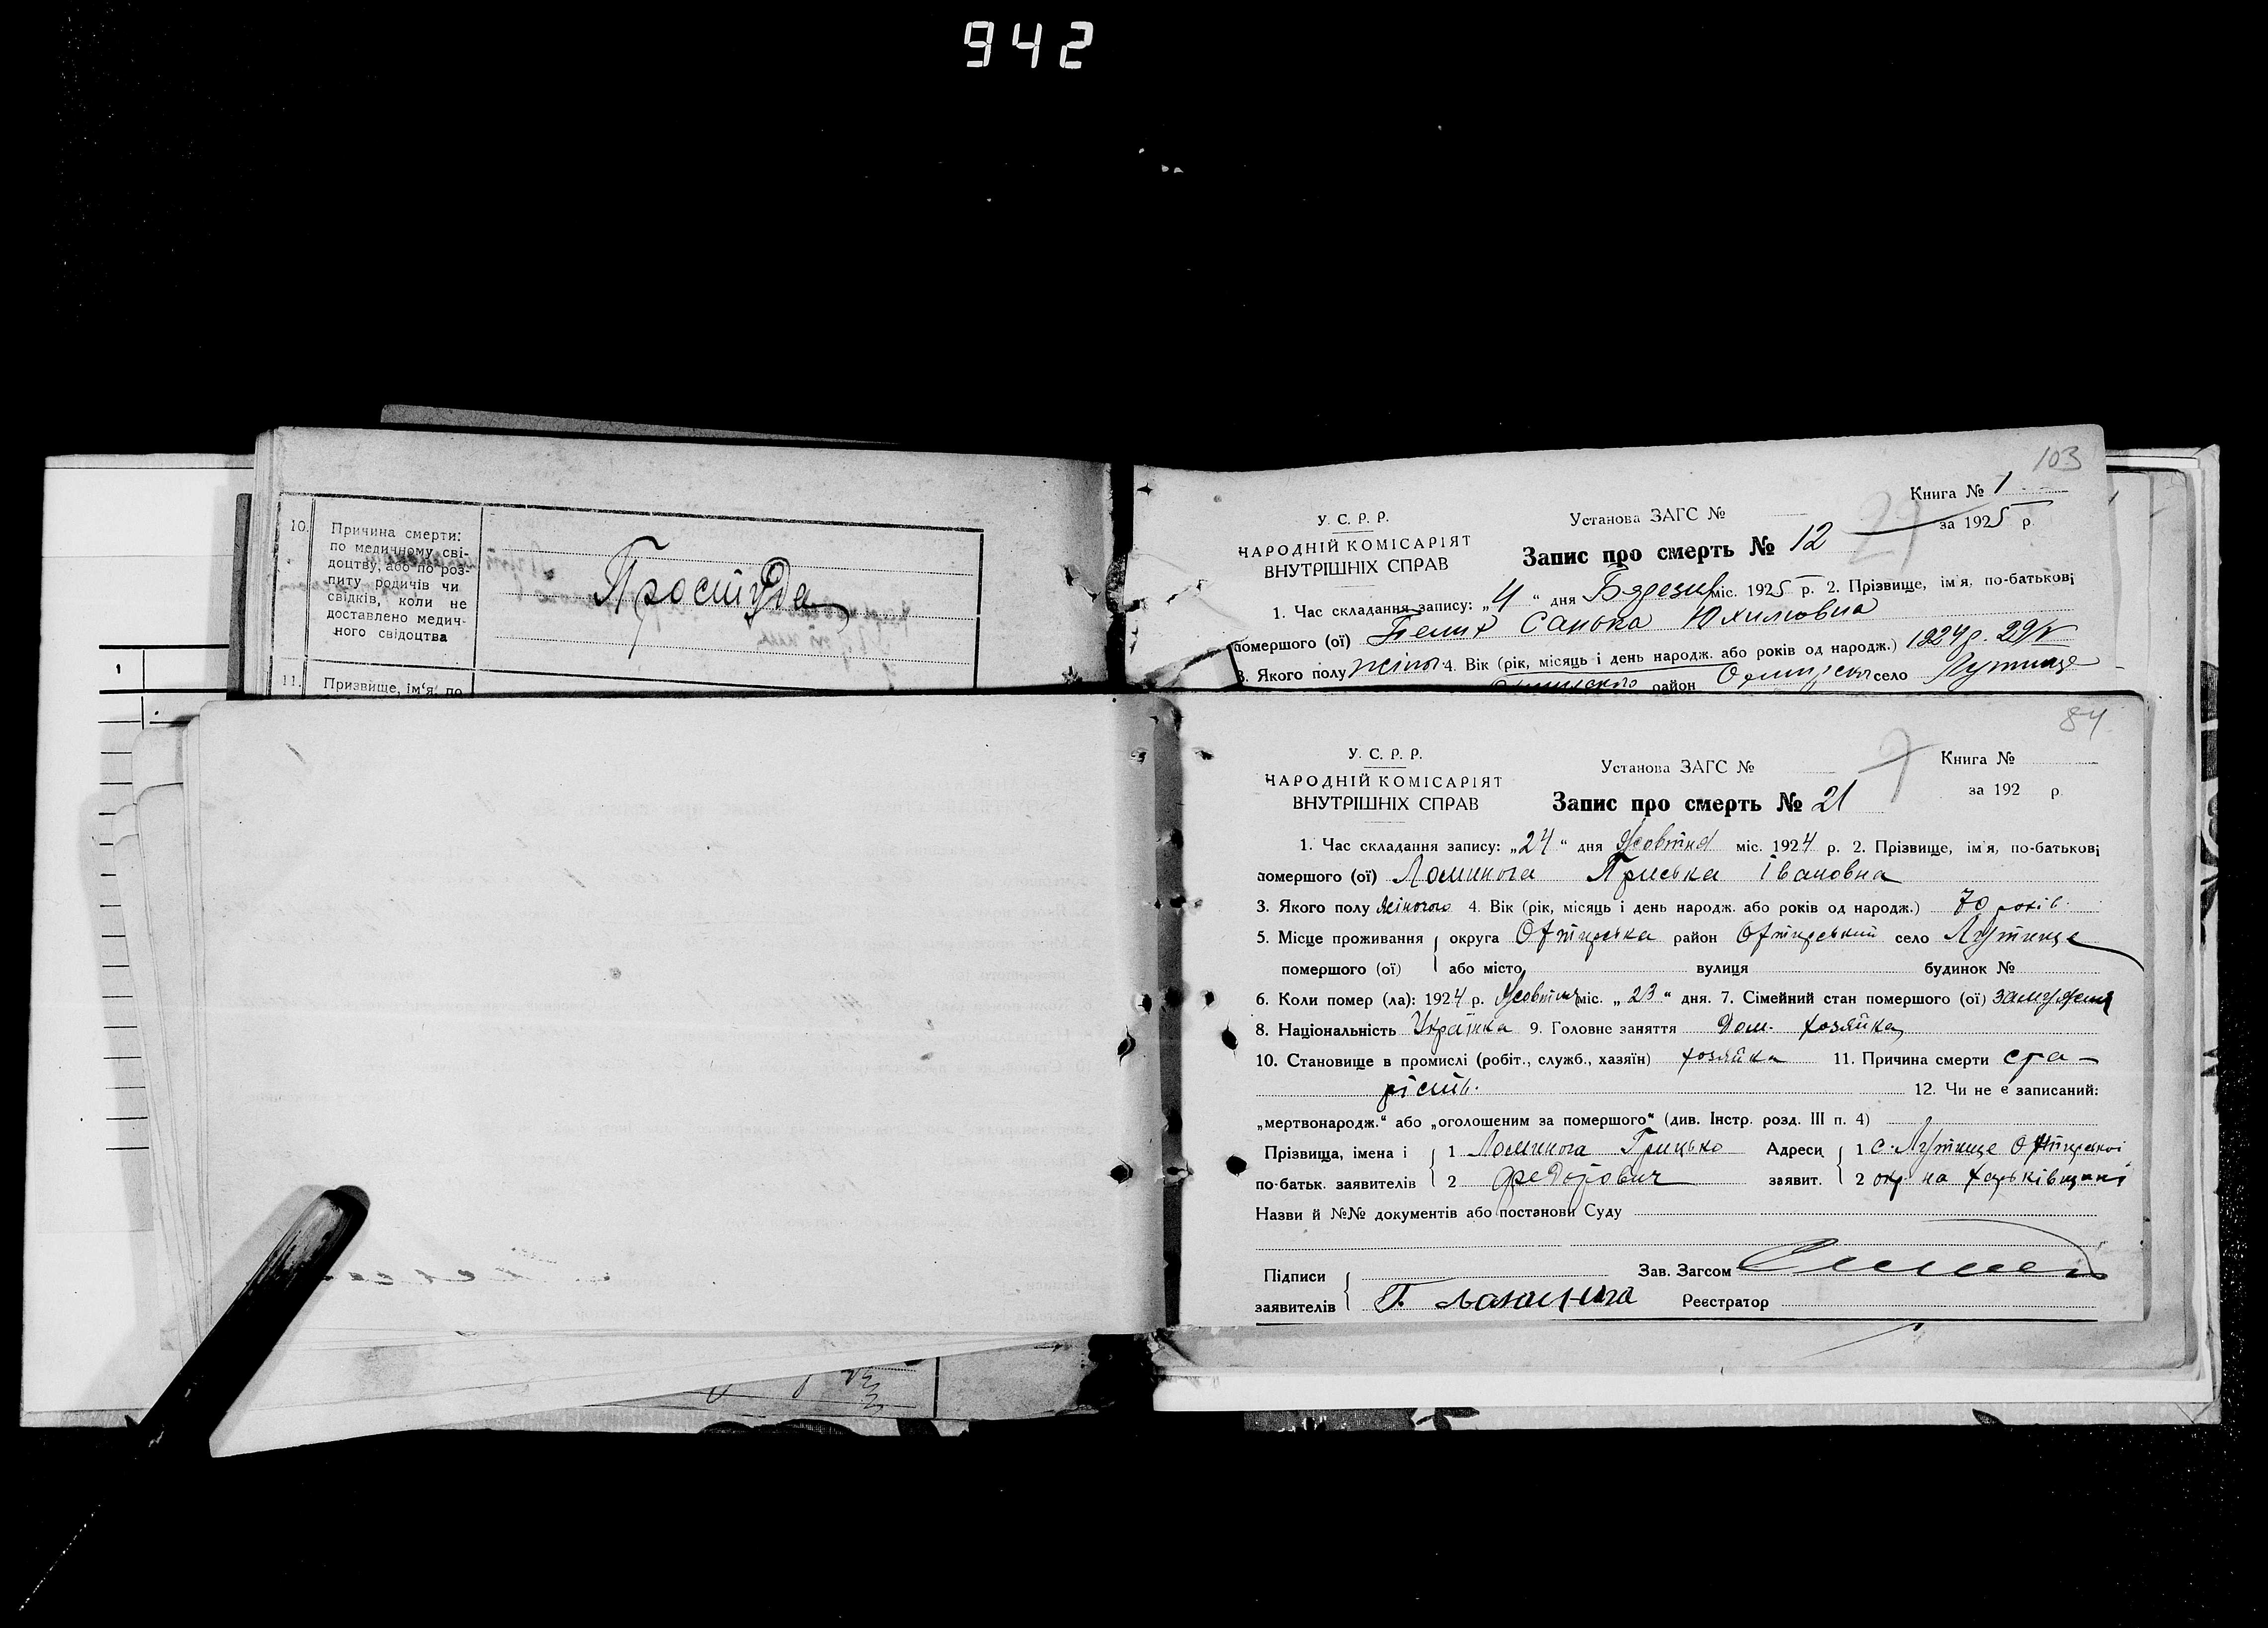 942
10. Причина смерти:
по медичному сві-
доцтву, або по роз-
питу родичів чи
свідків, коли не
доставлено медич-
ного свідоцтва
Простуда
11. Призвище, ім'я, по
1
103
Книга № 1
У. С. Р. Р.
Установа ЗАГС №
за 1925 р.
НАРОДНІЙ КОМІСАРІЯТ
ВНУТРІШНІХ СПРАВ
Запис про смерть № 12
1. Час складання запису: „4“ дня міс. 1925 р. 2. Прізвище, ім'я, по-батькові
помершого (ої) Санька Юхимовна
3. Якого полу жіноч. 4. Вік (рік, місяць і день народж. або років од народж.) 1924 р.
район село Лутище
84
У. С. Р. Р.
Установа ЗАГС №
Книга №
НАРОДНІЙ КОМІСАРІЯТ
ВНУТРІШНІХ СПРАВ
за 192 р.
Запис про смерть № 21
7
1. Час складання запису: „24“ дня Жовтня міс. 1924 р. 2. Прізвище, ім'я, по-батькові
помершого (ої) Ломинога Приська Івановна
3. Якого полу жіночого 4. Вік (рік, місяць і день народж. або років од народж.) 70 років.
5. Місце проживання округа Охтирська район Охтирський село Лутище
помершого (ої) або місто вулиця будинок №
6. Коли помер (ла): 1924 р. Жовтня міс. „23“ дня. 7. Сімейний стан помершого (ої) замужня
8. Національність Українка 9. Головне заняття Дом. хозяйка
10. Становище в промислі (робіт., служб., хазяїн) хозяйка 11. Причина смерти ста-
рість. 12. Чи не є записаний:
„мертвонародж.“ або „оголошеним за помершого“ (див. Інстр. розд. III п. 4)
Прізвища, імена і 1 Ломинога Грицько Адреси 1 с. Лутище Охтирської
по-батьк. заявителів 2 Федорович заявит. 2 окр на Харьківщині
Назви й №№ документів або постанови Суду
Підписи
Зав. Загсом
заявителів Г.
Реєстратор